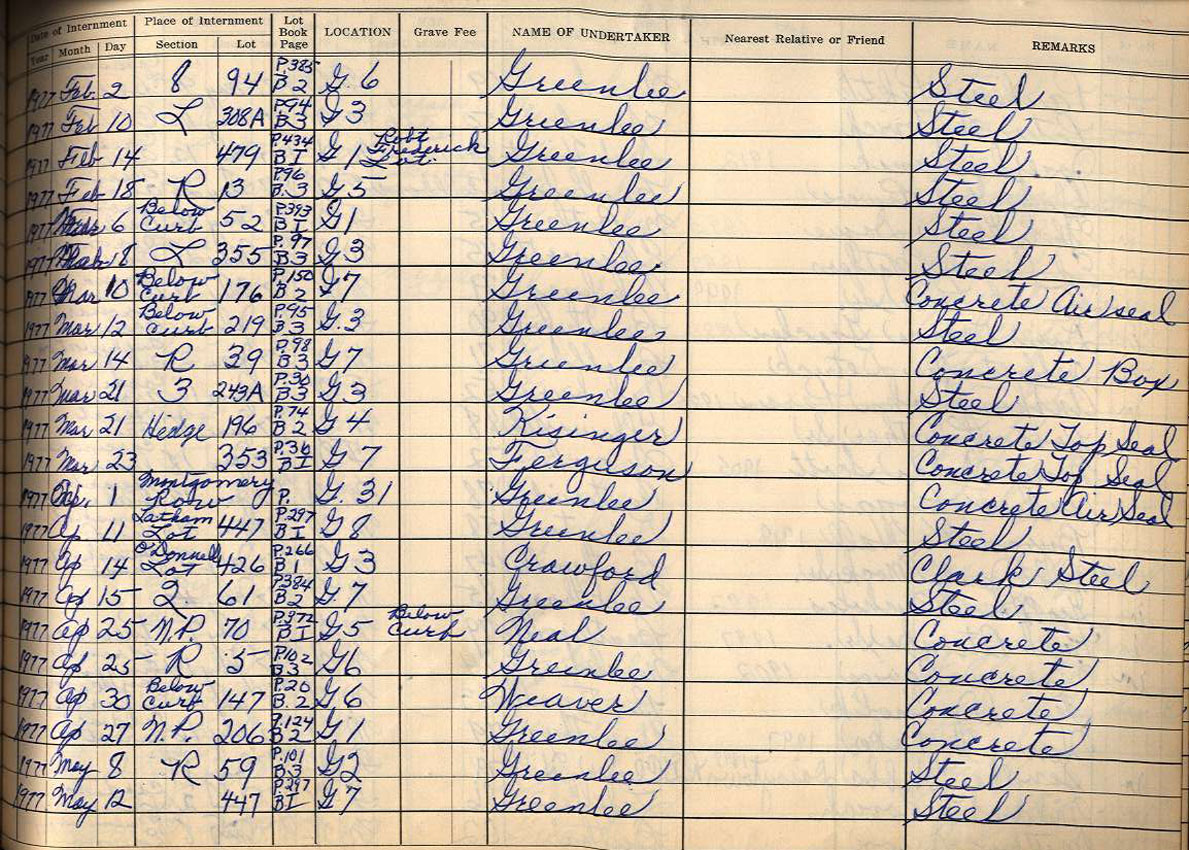 Date of Internment Place of Internment Lot Book Page LOCATION Grave Fee NAME OF UNDERTAKER Nearest Relative or Friend REMARKS
Year Month Day Section Lot
1977 Feb. 2 8 94 P.385 B 2 G. 6 Greenlee Steel
1977 Feb 10 L 308A P.94 B 3 G 3 Greenlee Steel
1977 Feb 14 479 P.434 B I G 1 Robt Frederick Lot. Greenlee Steel
1977 Feb 18 R 13 P.96 B. 3 G. 5 Greenlee Steel
1977 Mar 6 Below Curb 52 P.393 B I G 1 Greenlee Steel
1977 18 L 355 P. 97 B 3 G 3 Greenlee Steel
1977 Mar 10 Below Curb 176 P.150 B 2 G 7 Greenlee Concrete Air seal
1977 Mar 12 Below Curb 219 P.95 B 3 G. 3 Greenlee Steel
1977 Mar 14 R 39 P.98 B 3 G 7 Greenlee Concrete Box
1977 Mar 21 3 243A P.30 B 3 G 3 Greenlee Steel
1977 Mar 21 Hedge 196 P. 74 B 2 G 4 Kisinger Concrete Top Seal
1977 Mar 23 353 P.36 B I G 7 Ferguson Concrete Top Seal
1977 1 Montgomery Row P. G. 31 Greenlee Concrete Air Seal
1977 Ap 11 Latham Lot 447 P.297 B I G 8 Greenlee Steel
1977 Ap 14 O'Donnell Lot 426 P.266 B 1 G 3 Crawford Clark Steel
1977 Ap 15 2 61 P.384 B 2 G 7 Greenlee Steel
1977 Ap 25 N.P. 70 P.372 B I G 5 Below Curb Neal Concrete
1977 Ap 25 R 5 P.102 B.3 G 6 Greenlee Concrete
1977 Ap 30 Below Curb 147 P.20 B. 2 G. 6 Weaver Concrete
1977 Ap 27 N.P. 206 P.124 B.2 G 1 Greenlee Concrete
1977 May 8 R 59 P.101 B.3 G 2 Greenlee Steel
1977 May 12 447 P.297 B I G 7 Greenlee Steel